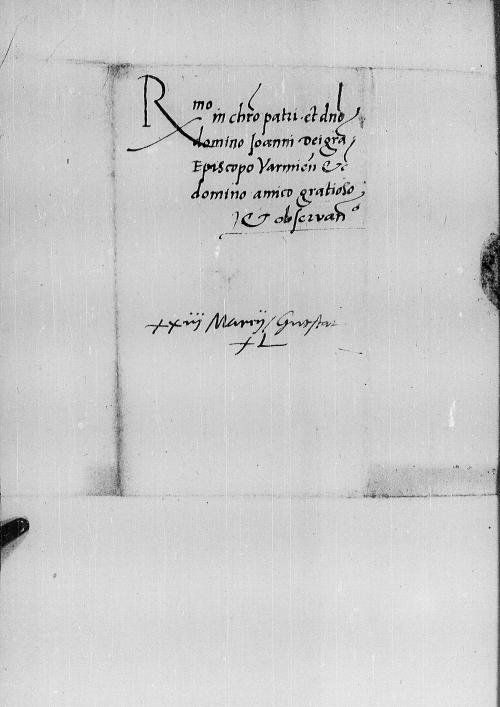 Rmo
in chro patri et dno
domino Joanni Dei gra
Episcopo Varmien &c
domino amico gratioso
& observan
xxiii Marcij
XL